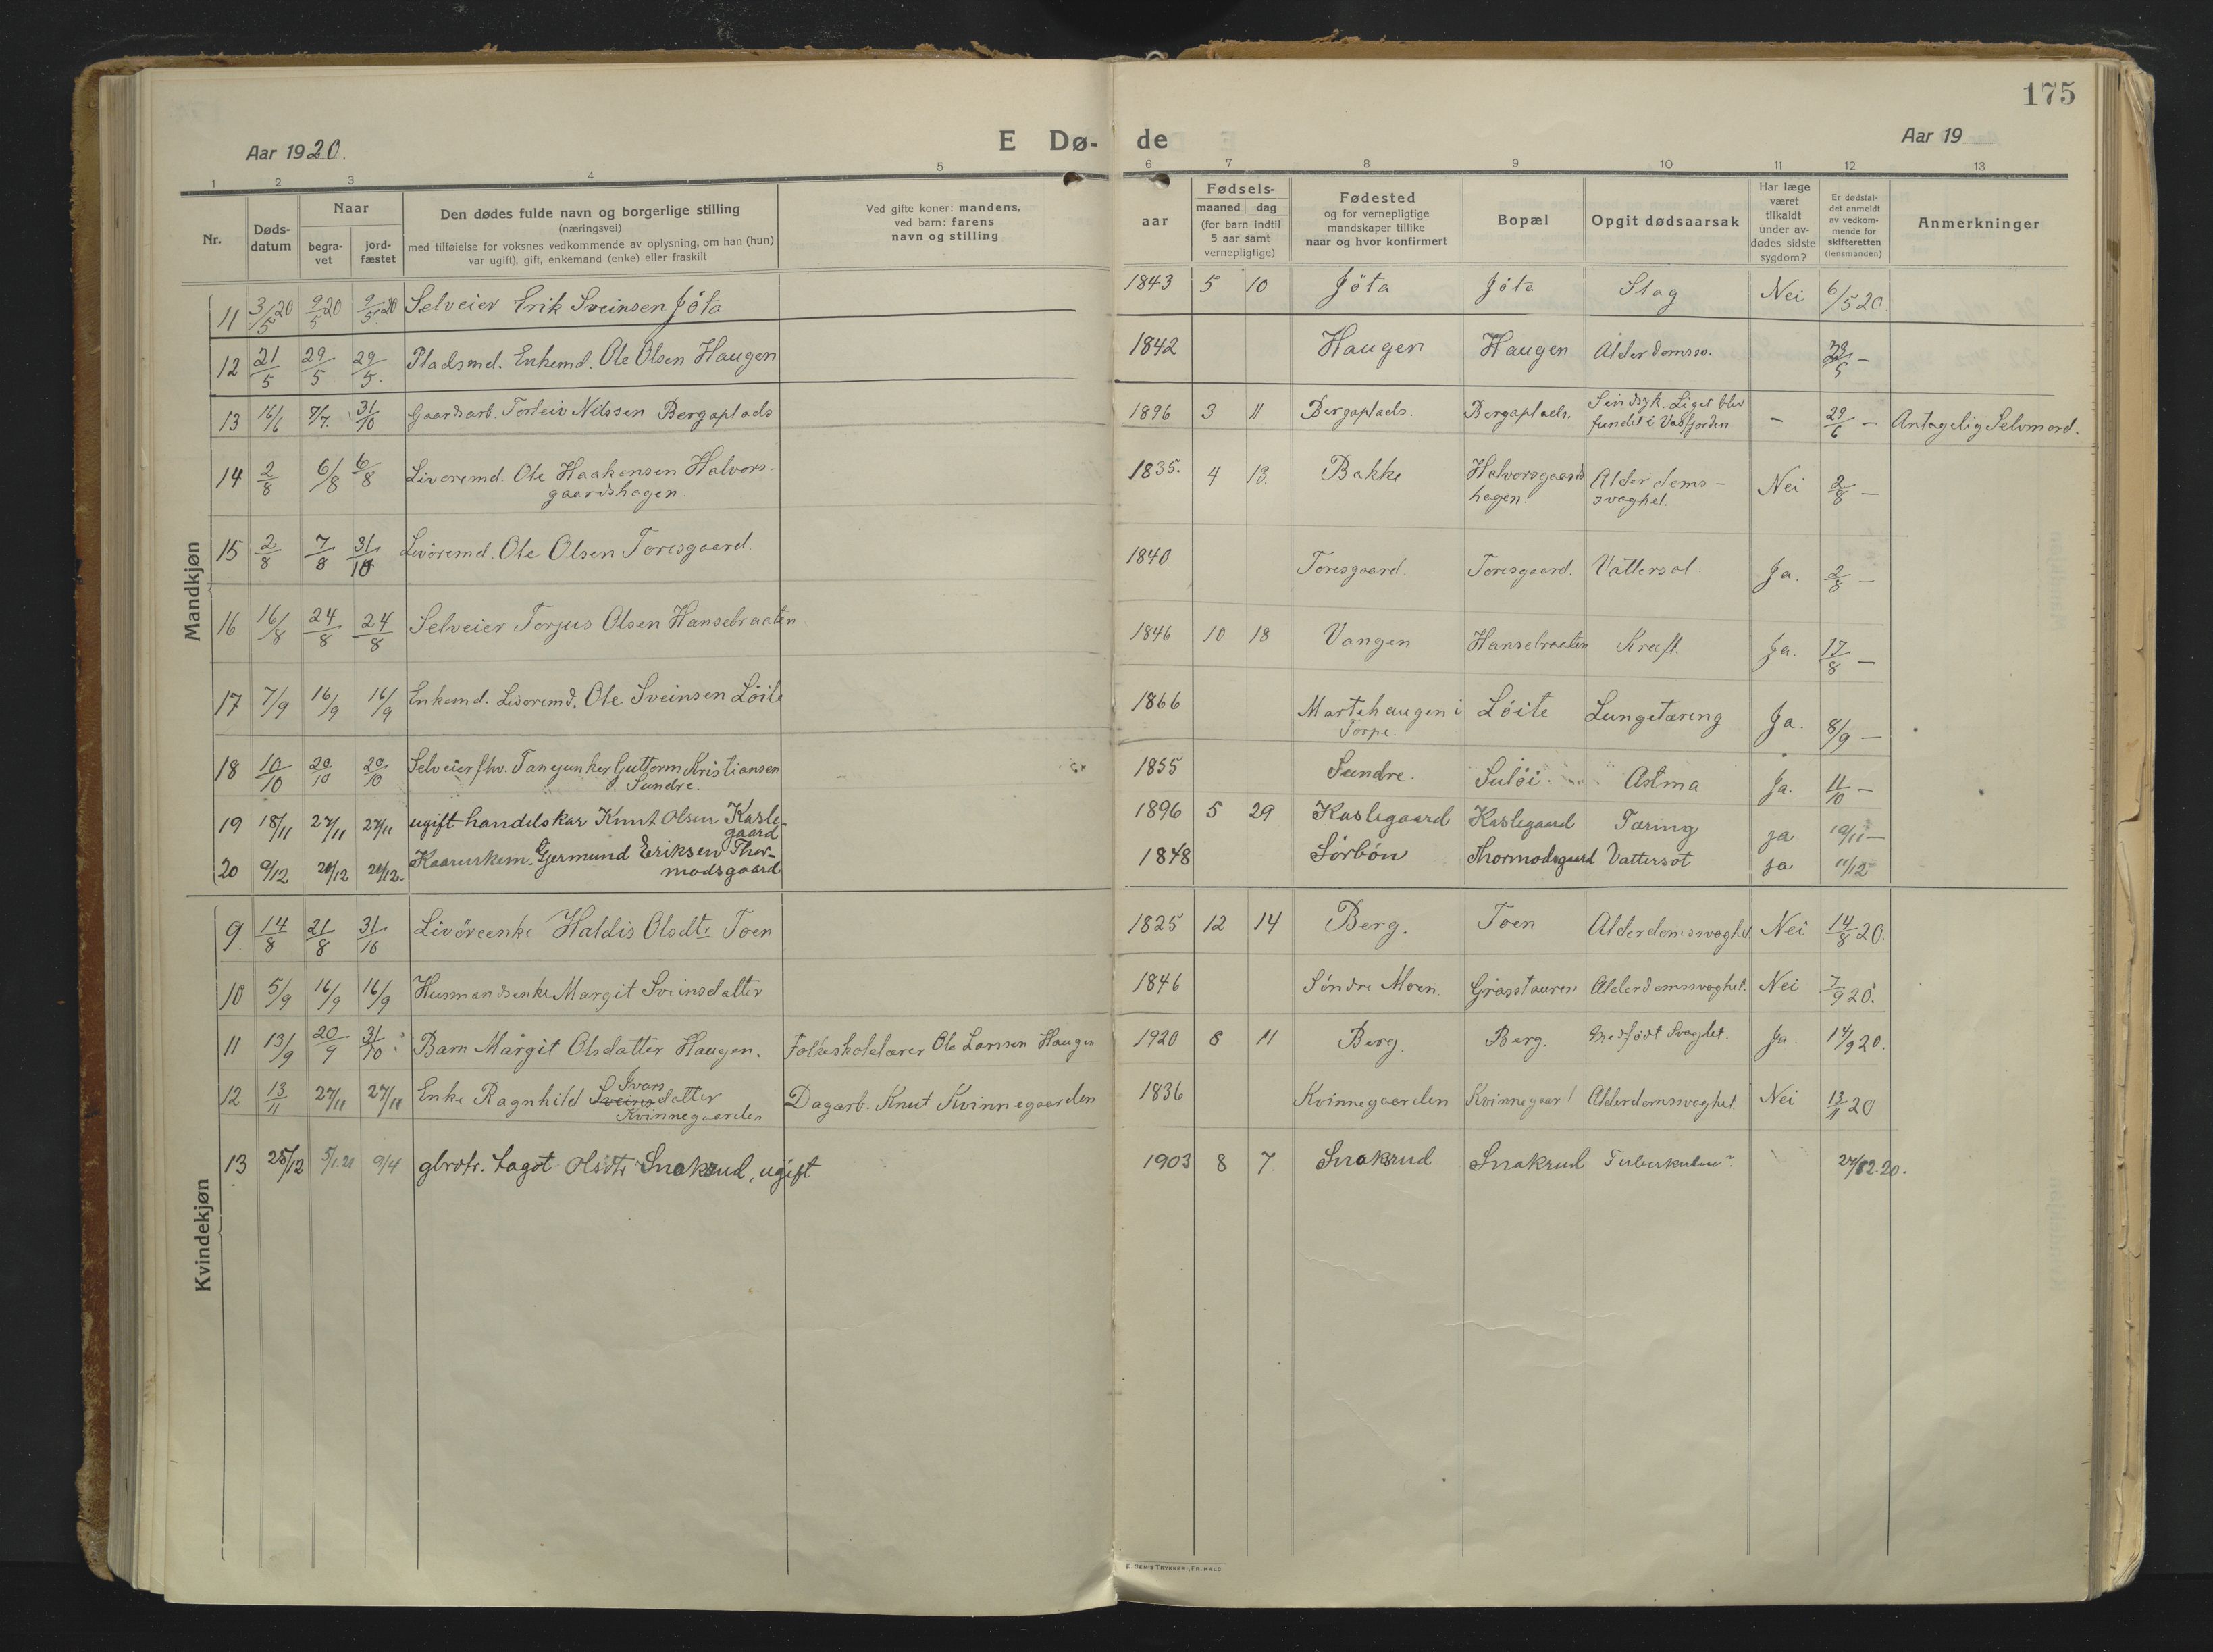 175
Aar 1920.
E Dø-
de
Aar 19
1 2 3 4 5 6 7 8 9 10 11 12 13
Nr.
Døds-
datum
Naar
begra-
vet
jord-
fæstet
Den dødes fulde navn og borgerlige stilling
(næringsvei)
med tilføielse for voksnes vedkommende av oplysning, om han (hun)
var ugift), gift, enkemand (enke) eller fraskilt
Ved gifte koner: mandens,
ved barn: farens
navn og stilling
aar
Fødsels-
maaned dag
(for barn indtil
5 aar samt
vernepligtige)
Fødested
og for vernepligtige
mandskaper tillike
naar og hvor konfirmert
Bopæl
Opgit dødsaarsak
Har læge
været
tilkaldt
under av-
dødes sidste
sygdom?
Er dødsfal-
det anmeldt
av vedkom-
mende for
skifteretten
(lensmanden)
Anmerkninger
Mandkjøn
11 3/5 20 9/5 20 9/5 20 Selveier Erik Sveinsen Jöta 1843 5 10 Jöta Jöta Slag Nei 6/5 20.
12 21/5 29/5 29/5. Pladsmd. Enkemd. Ole Olsen Haugen 1842 Haugen Haugen Alderdomssv.
13 16/6 7/7. 31/10 Gaardsarb. Torleiv Nilssen Bergaplads 1896 3 11 Bergaplads. Bergaplads. Sindsyk. Liget blev
fundet i Vasfjorden – 29/6 – Antagelig Selvmord.
14 2/8 6/8 6/8 Livöremd. Ole Haakensen Halvors-
gaardshagen. 1835. 4 13. Bakke Halvorsgaards
hagen. Alderdoms-
svaghet. Nei 2/8 –
15 2/8 7/8 31/10 Livöremd. Ole Olsen Toresgaard. 1840 Toresgaard. Toresgaard. Vattersot. Ja. 2/8 –
16 16/8 24/8 24/8 Selveier Torjus Olsen Hansebraaten 1846 10 18 Vangen Hansebraaten Kræft. Ja. 17/8 –
17 7/9 16/9 16/9 Enkemd. Livöremd. Ole Sveinsen Löite 1866 Martehaugen i
Torpe. Löite Lungetæring Ja. 8/9 –
18 10/10 20/10 20/10 Selveier fhv. Fanejunker Guttorm Kristiansen
Sundre. 1855 Sundre. Sulöi. Astma Ja. 11/10 –
19 18/11 27/11 27/11 ugift handelskar Knut Olsen Kasle-
gaard 1896 5 29 Kaslegaard Kaslegaard Tæring ja 19/11 –
20 9/12 20/12 20/12. Kaarenkem. Gjermund Eriksen Thor-
modsgaard 1848 Sörbön Thormodsgaard Vattersot ja 11/12
Kvindekjøn
9. 14/8 21/8 31/10 Livöreenke Haldis Olsdtr Toen 1825 12 14 Berg. Toen Alderdomssvaghet Nei 14/8 20.
10 5/9 16/9 16/9 Husmandsenke Margit Sveinsdatter 1846 Söndre Moen. Grøsstauren Alderdomssvaghet. Nei 7/9 20.
11 13/9 20/9 31/10 Barn Margit Olsdatter Haugen. Folkeskolelærer Ole Larssen Haugen 1920 8 11 Berg. Berg. Medfödt Svaghet. Ja. 14/9 20.
12 13/11 27/11 27/11 Enke Ragnhild Sveins Ivars datter
Kvinnegaarden Dagarb. Knut Kvinnegaarden 1836 Kvinnegaarden Kvinnegaar Alderdomssvaghet. Nei 13/11 20
13 25/12 5/1.21 9/4 gbrdtr. Lagot Olsdtr Snakrud, ugift 1903 8 7. Snakrud Snakrud Tuberkulose 27/12.20.
E. SEM'S TRYKKERI, FR.HALD